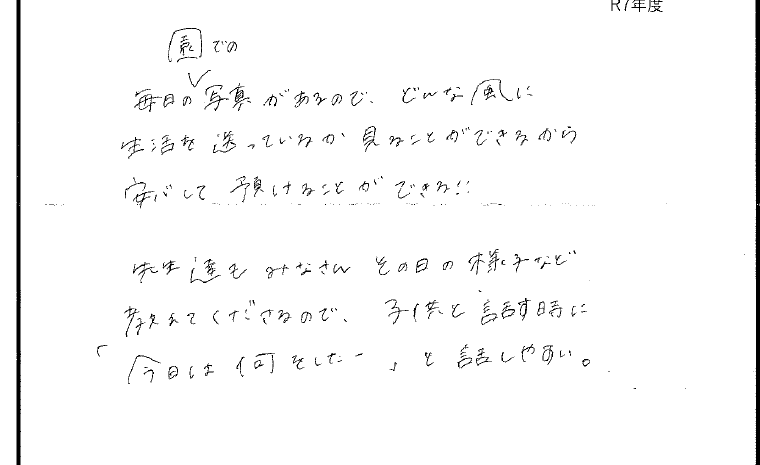 R7年度
園での
毎日の写真があるので、どんな風に
生活を送っているか見ることができるから
安心して預けることができる!!
先生達もみなさんその日の様子など
教えてくださるので、子供と話す時に
「今日は何をしたー」と話しやすい。